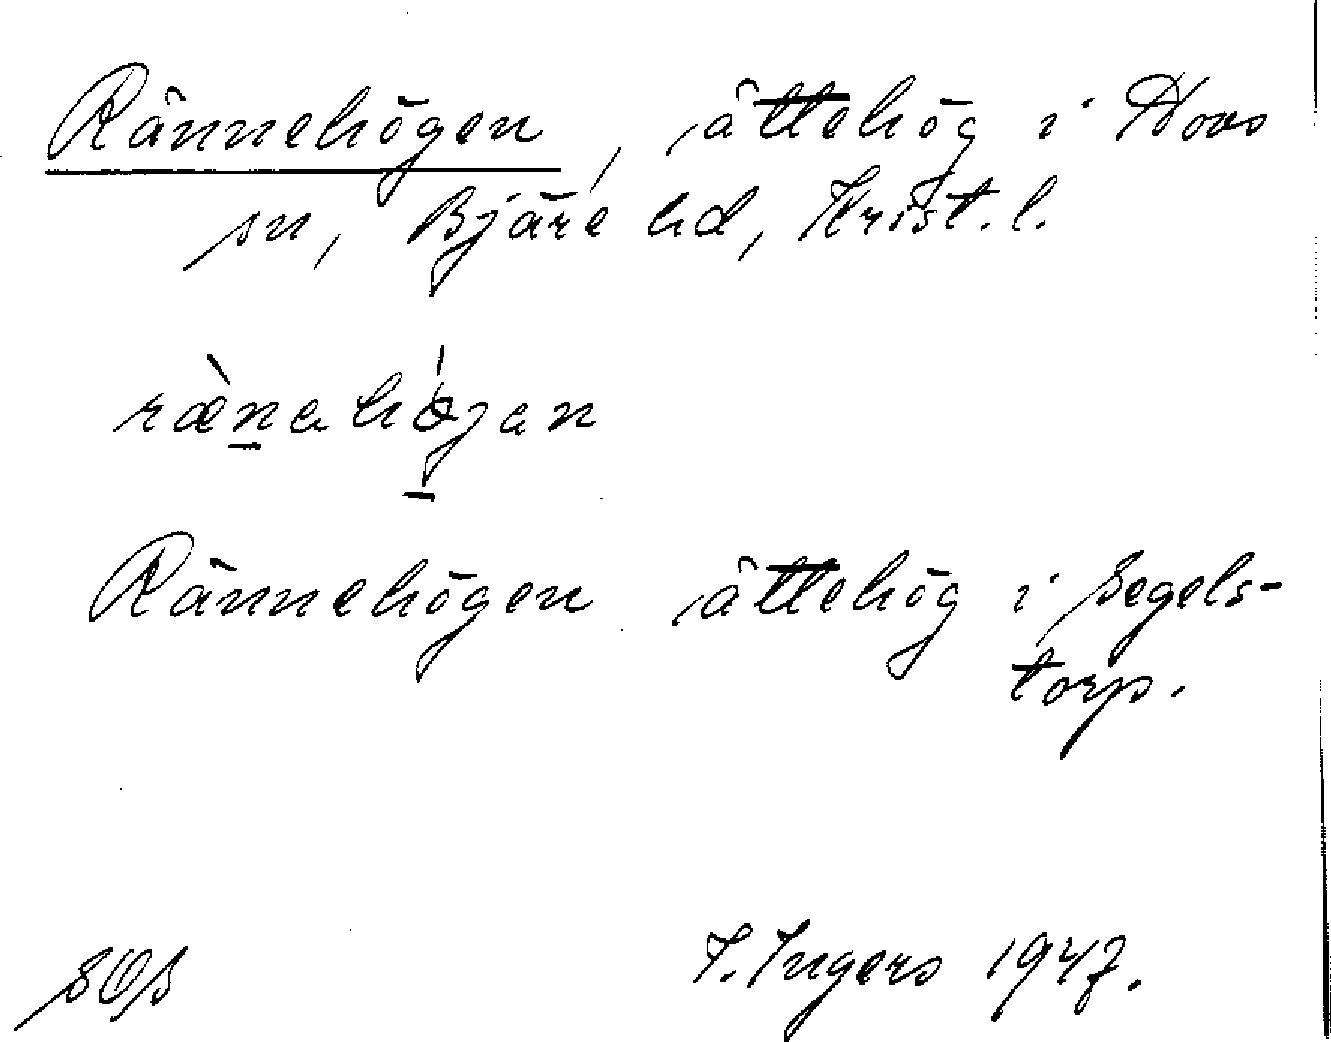 Rännehögen, ättehög i Hovs
sn, Bjäre hd, Krist. l.
ræ̀nahǿjan
Rännehögen ättehög i Segels-
torp.
SOS I. Ingers 1947.